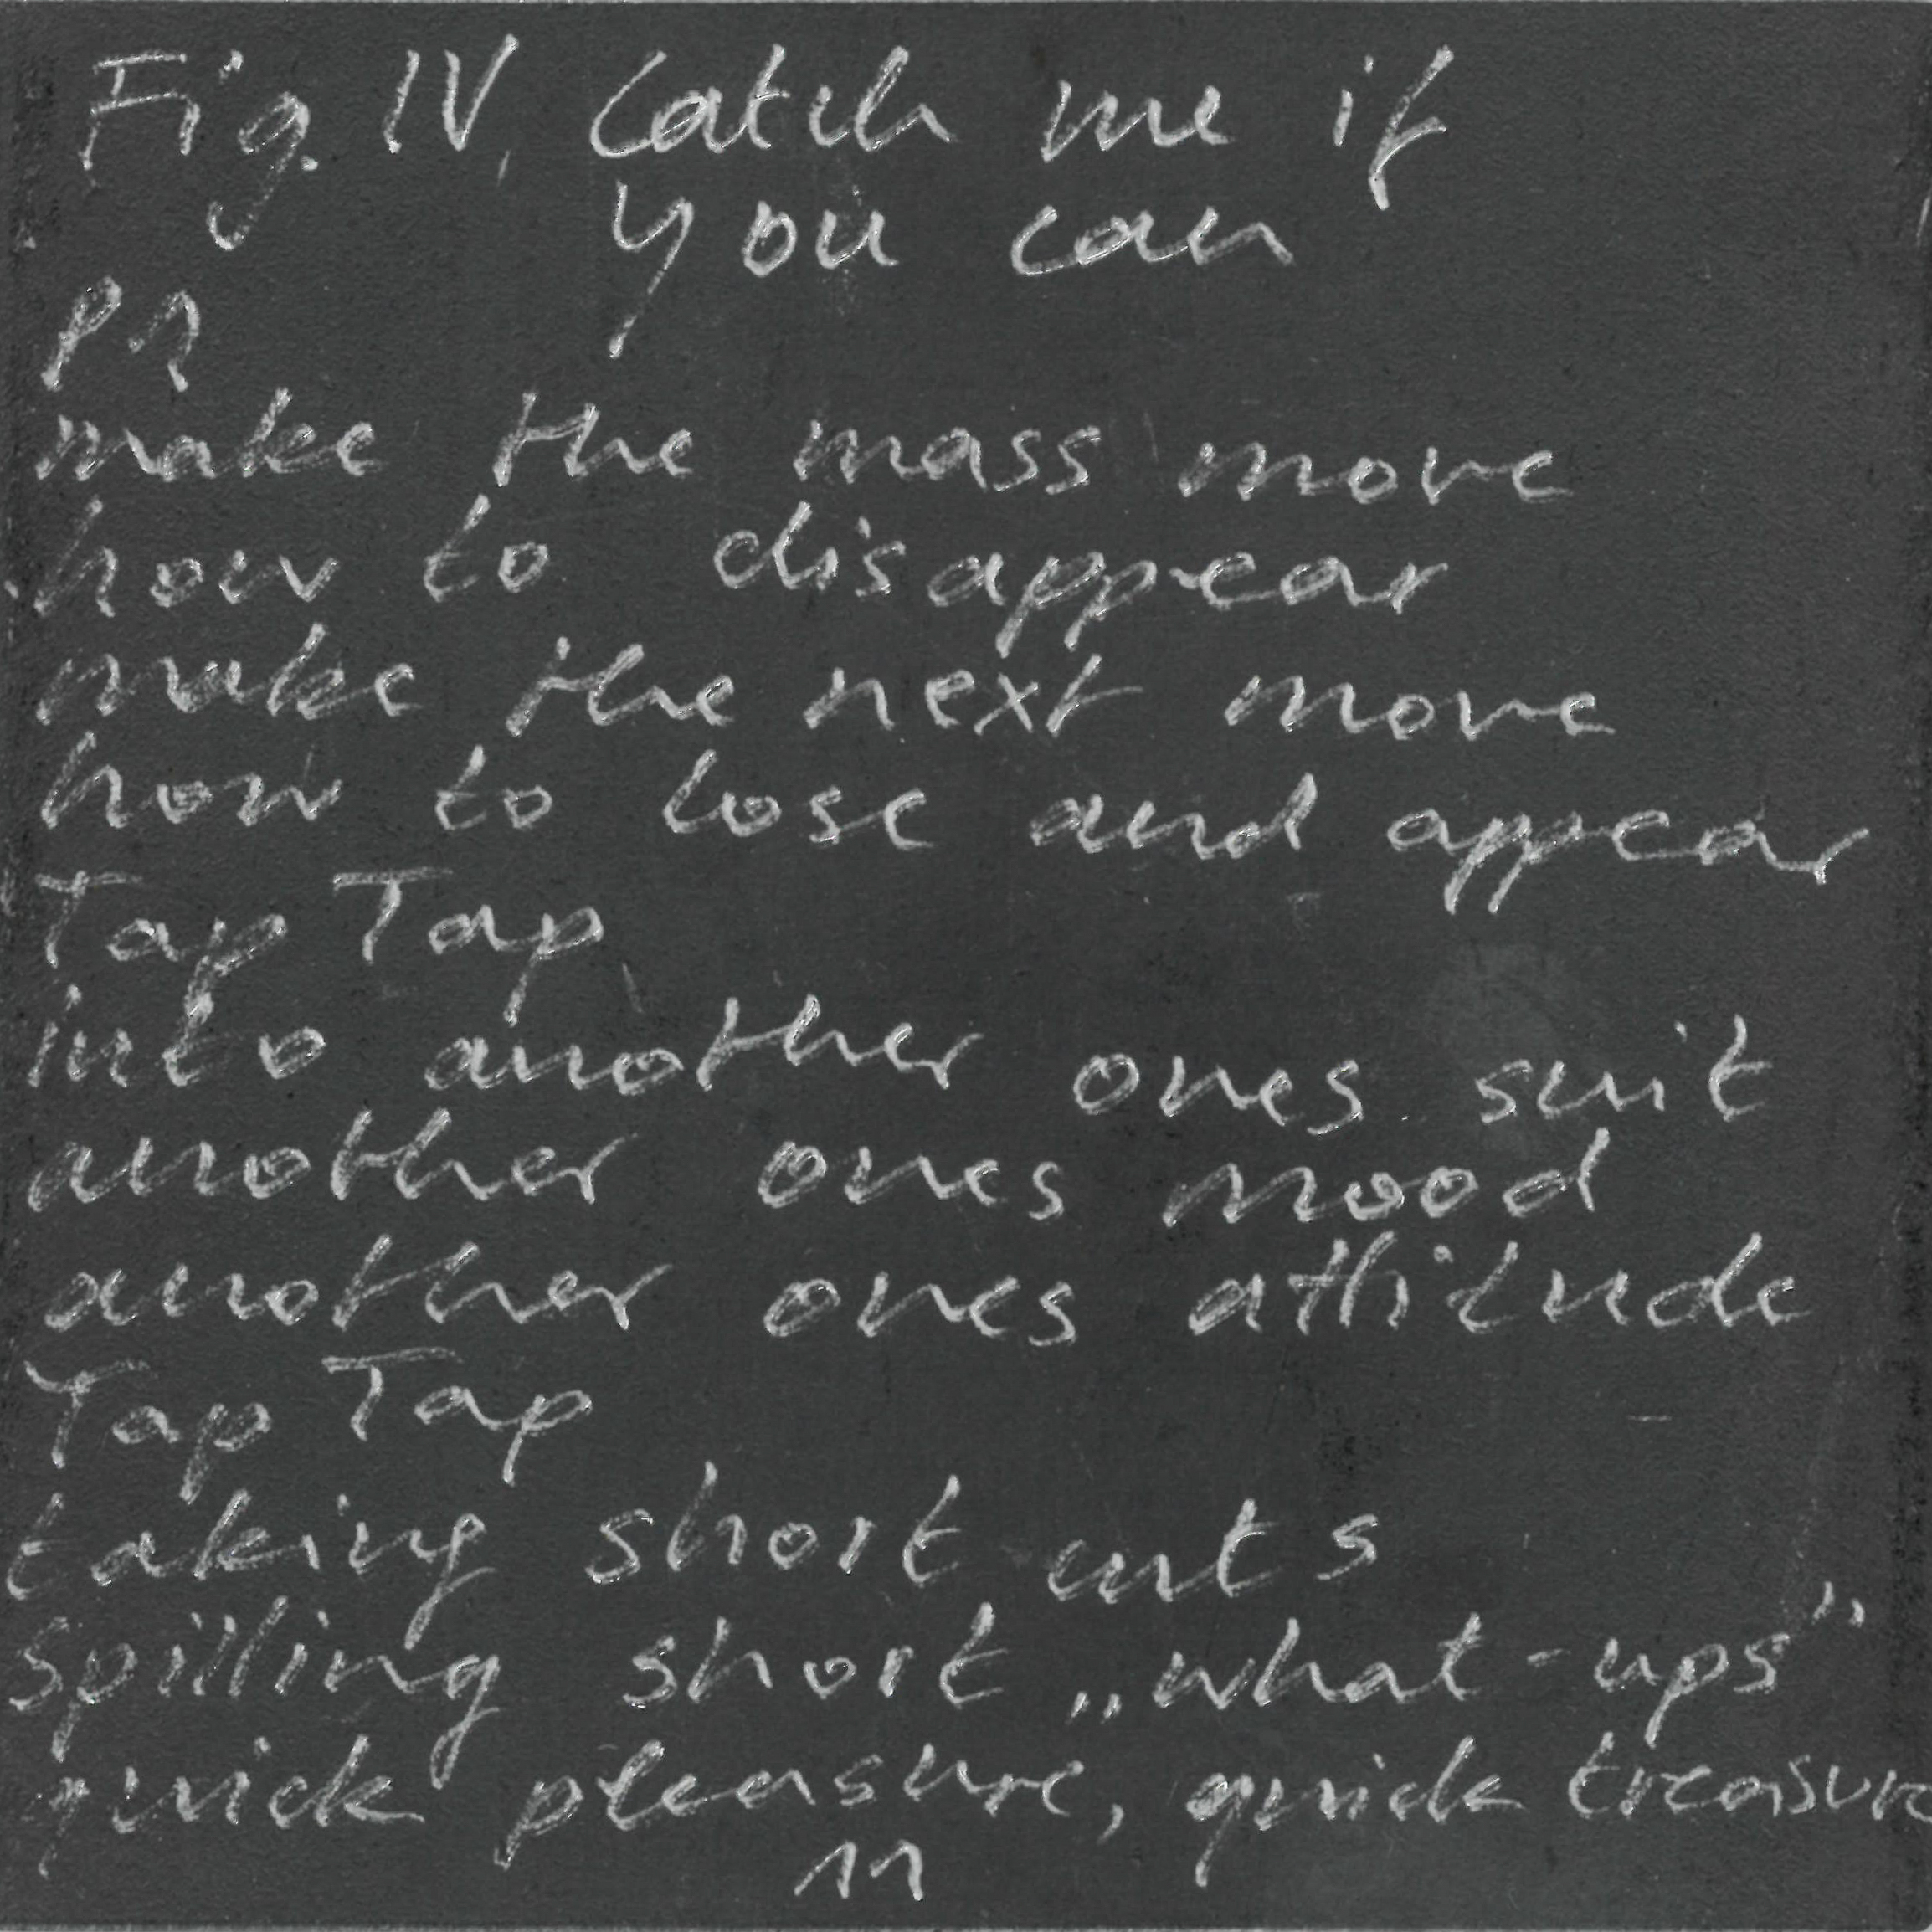 Fig. IV, Catch me if
you can
P1
make the mass move
how to disappear
make the next move
how to lose and appear
Tap Tap
into another ones suit
another ones mood
another ones attitude
Tap Tap
taking short cuts
spilling short „what-ups"
quick pleasure, quick treasure
11